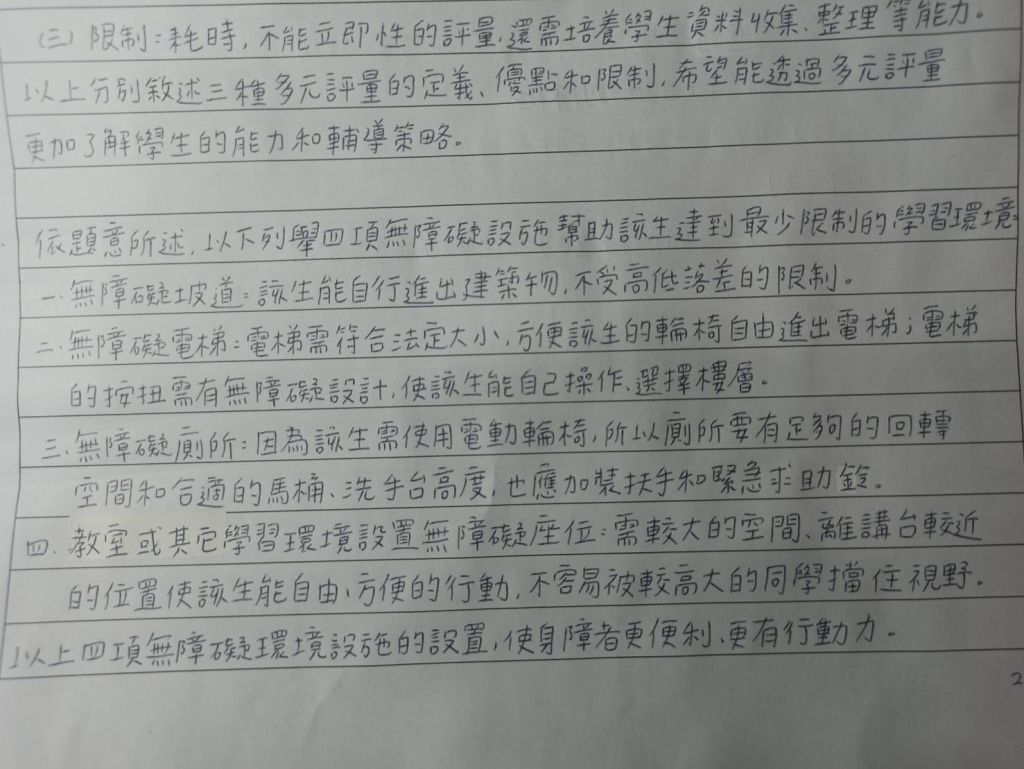 (三) 限制：耗時，不能立即性的評量，還需培養學生資料收集、整理等能力。
以上分別敘述三種多元評量的定義、優點和限制，希望能透過多元評量
更加了解學生的能力和輔導策略。
依題意所述，以下列舉四項無障礙設施幫助該生達到最少限制的學習環境：
一、無障礙坡道：該生能自行進出建築物，不受高低落差的限制。
二、無障礙電梯：電梯需符合法定大小，方便該生的輪椅自由進出電梯；電梯
的按扭需有無障礙設計，使該生能自己操作、選擇樓層。
三、無障礙廁所：因為該生需使用電動輪椅，所以廁所要有足夠的回轉
空間和合適的馬桶、洗手台高度，也應加裝扶手和緊急求助鈴。
四、教室或其它學習環境設置無障礙座位：需較大的空間、離講台較近
的位置使該生能自由、方便的行動，不容易被較高大的同學擋住視野。
以上四項無障礙環境設施的設置，使身障者更便利、更有行動力。
2